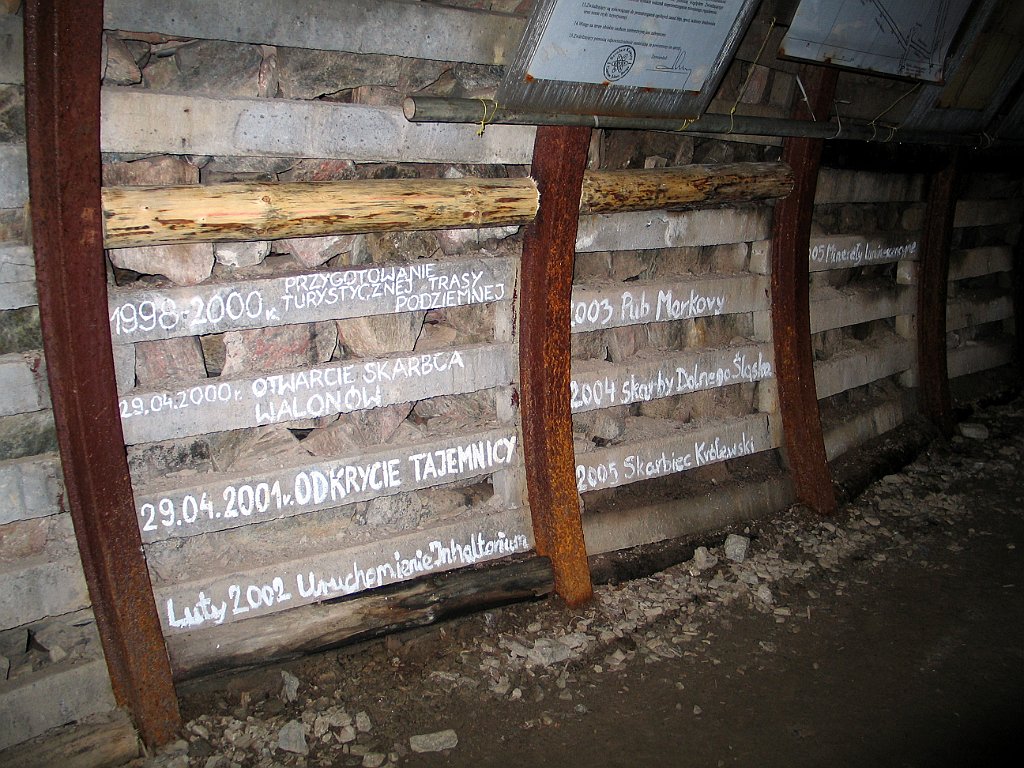 1998-2000 r. PRZYGOTOWANIE
TURYSTYCZNEJ TRASY
PODZIEMNEJ
29.04.2000 r. OTWARCIE SKARBCA
WALONÓW
29.04.2001 r. ODKRYCIE TAJEMNICY
Luty 2002 Uruchomienie Inhaltorium
2003 Pub Markovy
2004 Skarby Dolnego Śląska
2005 Skarbiec Królewski
005 Minerały